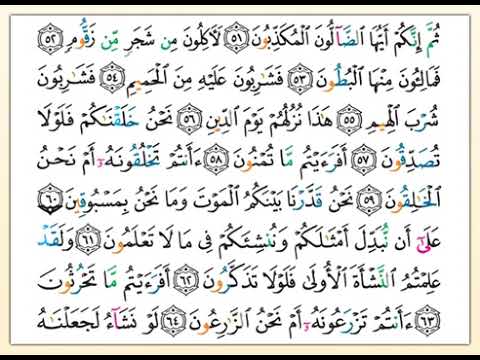 ثُمَّ إِنَّكُمْ أَيُّهَا الضَّآلُّونَ الْمُكَذِّبُونَ ۝٥١ لَآكِلُونَ مِن شَجَرٍ مِّن زَقُّومٍ ۝٥٢
فَمَالِـُٔونَ مِنْهَا الْبُطُونَ ۝٥٣ فَشَارِبُونَ عَلَيْهِ مِنَ الْحَمِيمِ ۝٥٤ فَشَارِبُونَ
شُرْبَ الْهِيمِ ۝٥٥ هَٰذَا نُزُلُهُمْ يَوْمَ الدِّينِ ۝٥٦ نَحْنُ خَلَقْنَاكُمْ فَلَوْلَا
تُصَدِّقُونَ ۝٥٧ أَفَرَءَيْتُم مَّا تُمْنُونَ ۝٥٨ ءَأَنتُمْ تَخْلُقُونَهُۥٓ أَمْ نَحْنُ
الْخَالِقُونَ ۝٥٩ نَحْنُ قَدَّرْنَا بَيْنَكُمُ الْمَوْتَ وَمَا نَحْنُ بِمَسْبُوقِينَ ۝٦٠
عَلَىٰٓ أَن نُّبَدِّلَ أَمْثَالَكُمْ وَنُنشِئَكُمْ فِى مَا لَا تَعْلَمُونَ ۝٦١ وَلَقَدْ
عَلِمْتُمُ النَّشْأَةَ الْأُولَىٰ فَلَوْلَا تَذَكَّرُونَ ۝٦٢ أَفَرَءَيْتُم مَّا تَحْرُثُونَ
۝٦٣ ءَأَنتُمْ تَزْرَعُونَهُۥٓ أَمْ نَحْنُ الزَّارِعُونَ ۝٦٤ لَوْ نَشَآءُ لَجَعَلْنَاهُ